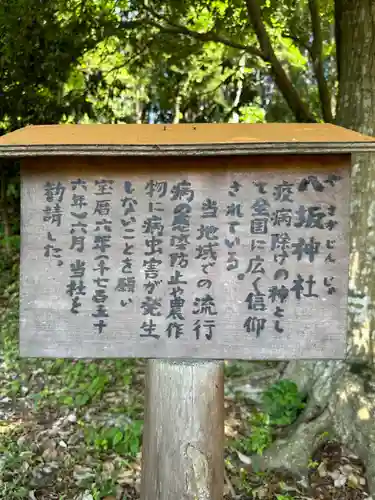 八坂神社
やさかじんじゃ
疫病除けの神とし
て全国に広く信仰
されている。
当地域での流行
病の悪疫防止や農作
物に病虫害が発生
しないことを願い
宝暦六年(一七五十
六年)六月当社を
勧請した。